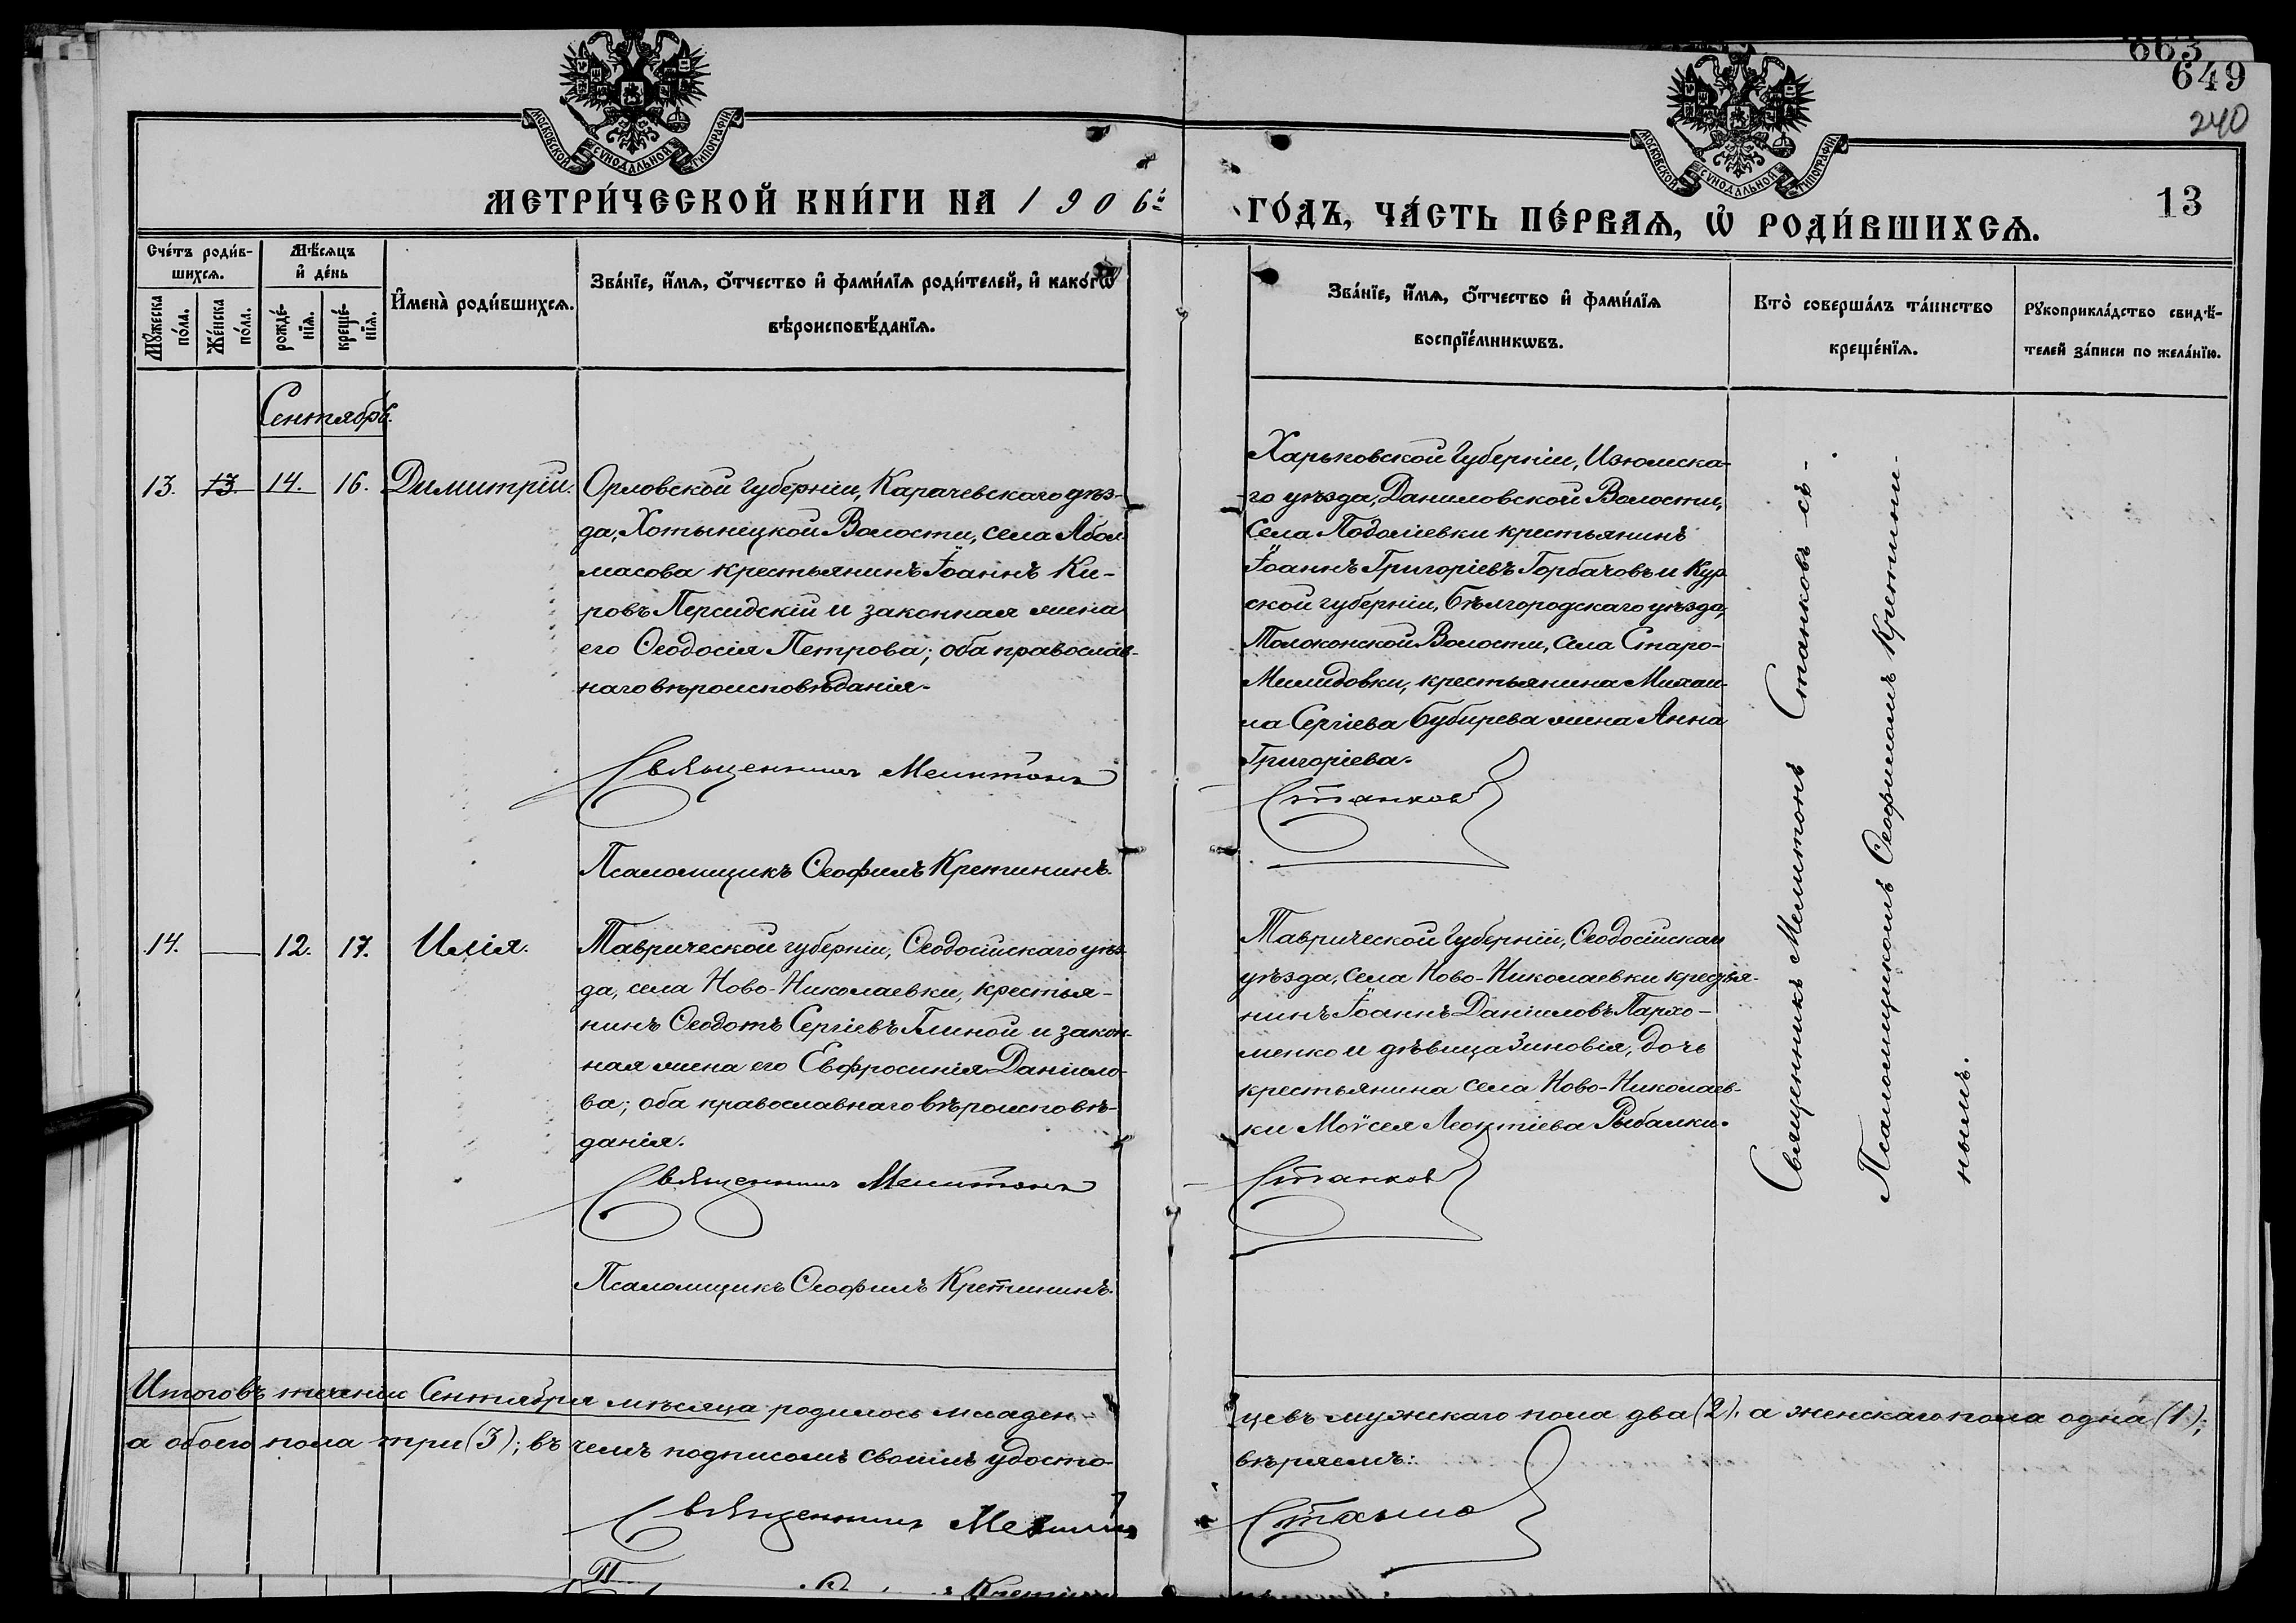 663
649
240
13
МОСКОВСКОЙ СУНОДАЛЬНОЙ ТИПОГРАФІИ
МОСКОВСКОЙ СУНОДАЛЬНОЙ ТИПОГРАФІИ
МЕТРИ́ЧЕСКОЙ КНИ́ГИ НА 1906й
ГО́ДЪ, ЧА́СТЬ ПЕ́РВАѦ, Ѡ҆ РОДИ́ВШИХСѦ.
Сче́тъ роди́в-
шихсѧ.
Мꙋ́жеска по́ла.
Же́нска по́ла.
Мѣ́сяцъ
и҆ де́нь
рожде́-нїѧ.
креще́-нїѧ.
И҆мена̀ роди́вшихсѧ.
Зва́нїе, и҆́мѧ, ѻ҆́тчество и҆ фами́лїѧ роди́телей, и҆ како́гѡ
вѣроисповѣ́данїѧ.
Зва́нїе, и҆́мѧ, ѻ҆́тчество и҆ фами́лїѧ
воспрїе́мникѡвъ.
Кто̀ соверша́лъ та́инство
креще́нїѧ.
Рꙋкоприкла́дство свидѣ́-
телей за́писи по жела́нїю.
Сентябрь.
13. 13. 14. 16. Димитрій.
Орловской губерніи, Карачевскаго уѣз-
да, Хотынецкой Волости, села Абол-
масова крестьянинъ Іоаннъ Ки-
ровъ Персидскій и законная жена
его Ѳеодосія Петрова; оба православ-
наго вѣроисповѣданія.
Священникъ Мелитонъ
Псаломщикъ Ѳеофилъ Кретининъ.
Харьковской Губерніи, Изюмска-
го уѣзда, Даниловской Волости,
Села Подоліевки крестьянинъ
Іоаннъ Григоріевъ Горбачовъ и Кур-
ской губерніи, Бѣлгородскаго уѣзда,
Толоконской Волости, села Старо-
Мелидовки, крестьянина Михаи-
ла Сергіева Бубырева жена Анна
Григоріева.
Станковъ
Священникъ Мелитонъ Станковъ съ-
Псаломщикомъ Ѳеофиломъ Кретини-
нымъ.
14. — 12. 17. Илія.
Таврической губерніи, Ѳеодосійскаго уѣз-
да, села Ново-Николаевки, крестья-
нинъ Ѳеодотъ Сергіевъ Глиной и закон-
ная жена его Евфросинія Даніило-
ва; оба православнаго вѣроисповѣ-
данія.
Священникъ Мелитонъ
Псаломщикъ Ѳеофилъ Кретининъ.
Таврической Губерніи, Ѳеодосійскаго
уѣзда, села Ново-Николаевки крестья-
нинъ Іоаннъ Даніиловъ Пархо-
менко и дѣвица Зиновія, дочь
крестьянина села Ново-Николаев-
ки Моѵсея Леонтіева Рыбалки.
Станковъ
Итого въ теченіи Сентября мѣсяца родилось младен-
цевъ мужскаго пола два (2), а женскаго пола одна (1);
а обоего пола три (3); въ чемъ подписомъ своимъ удосто-
вѣряемъ:
Священникъ Мелитонъ
Станковъ